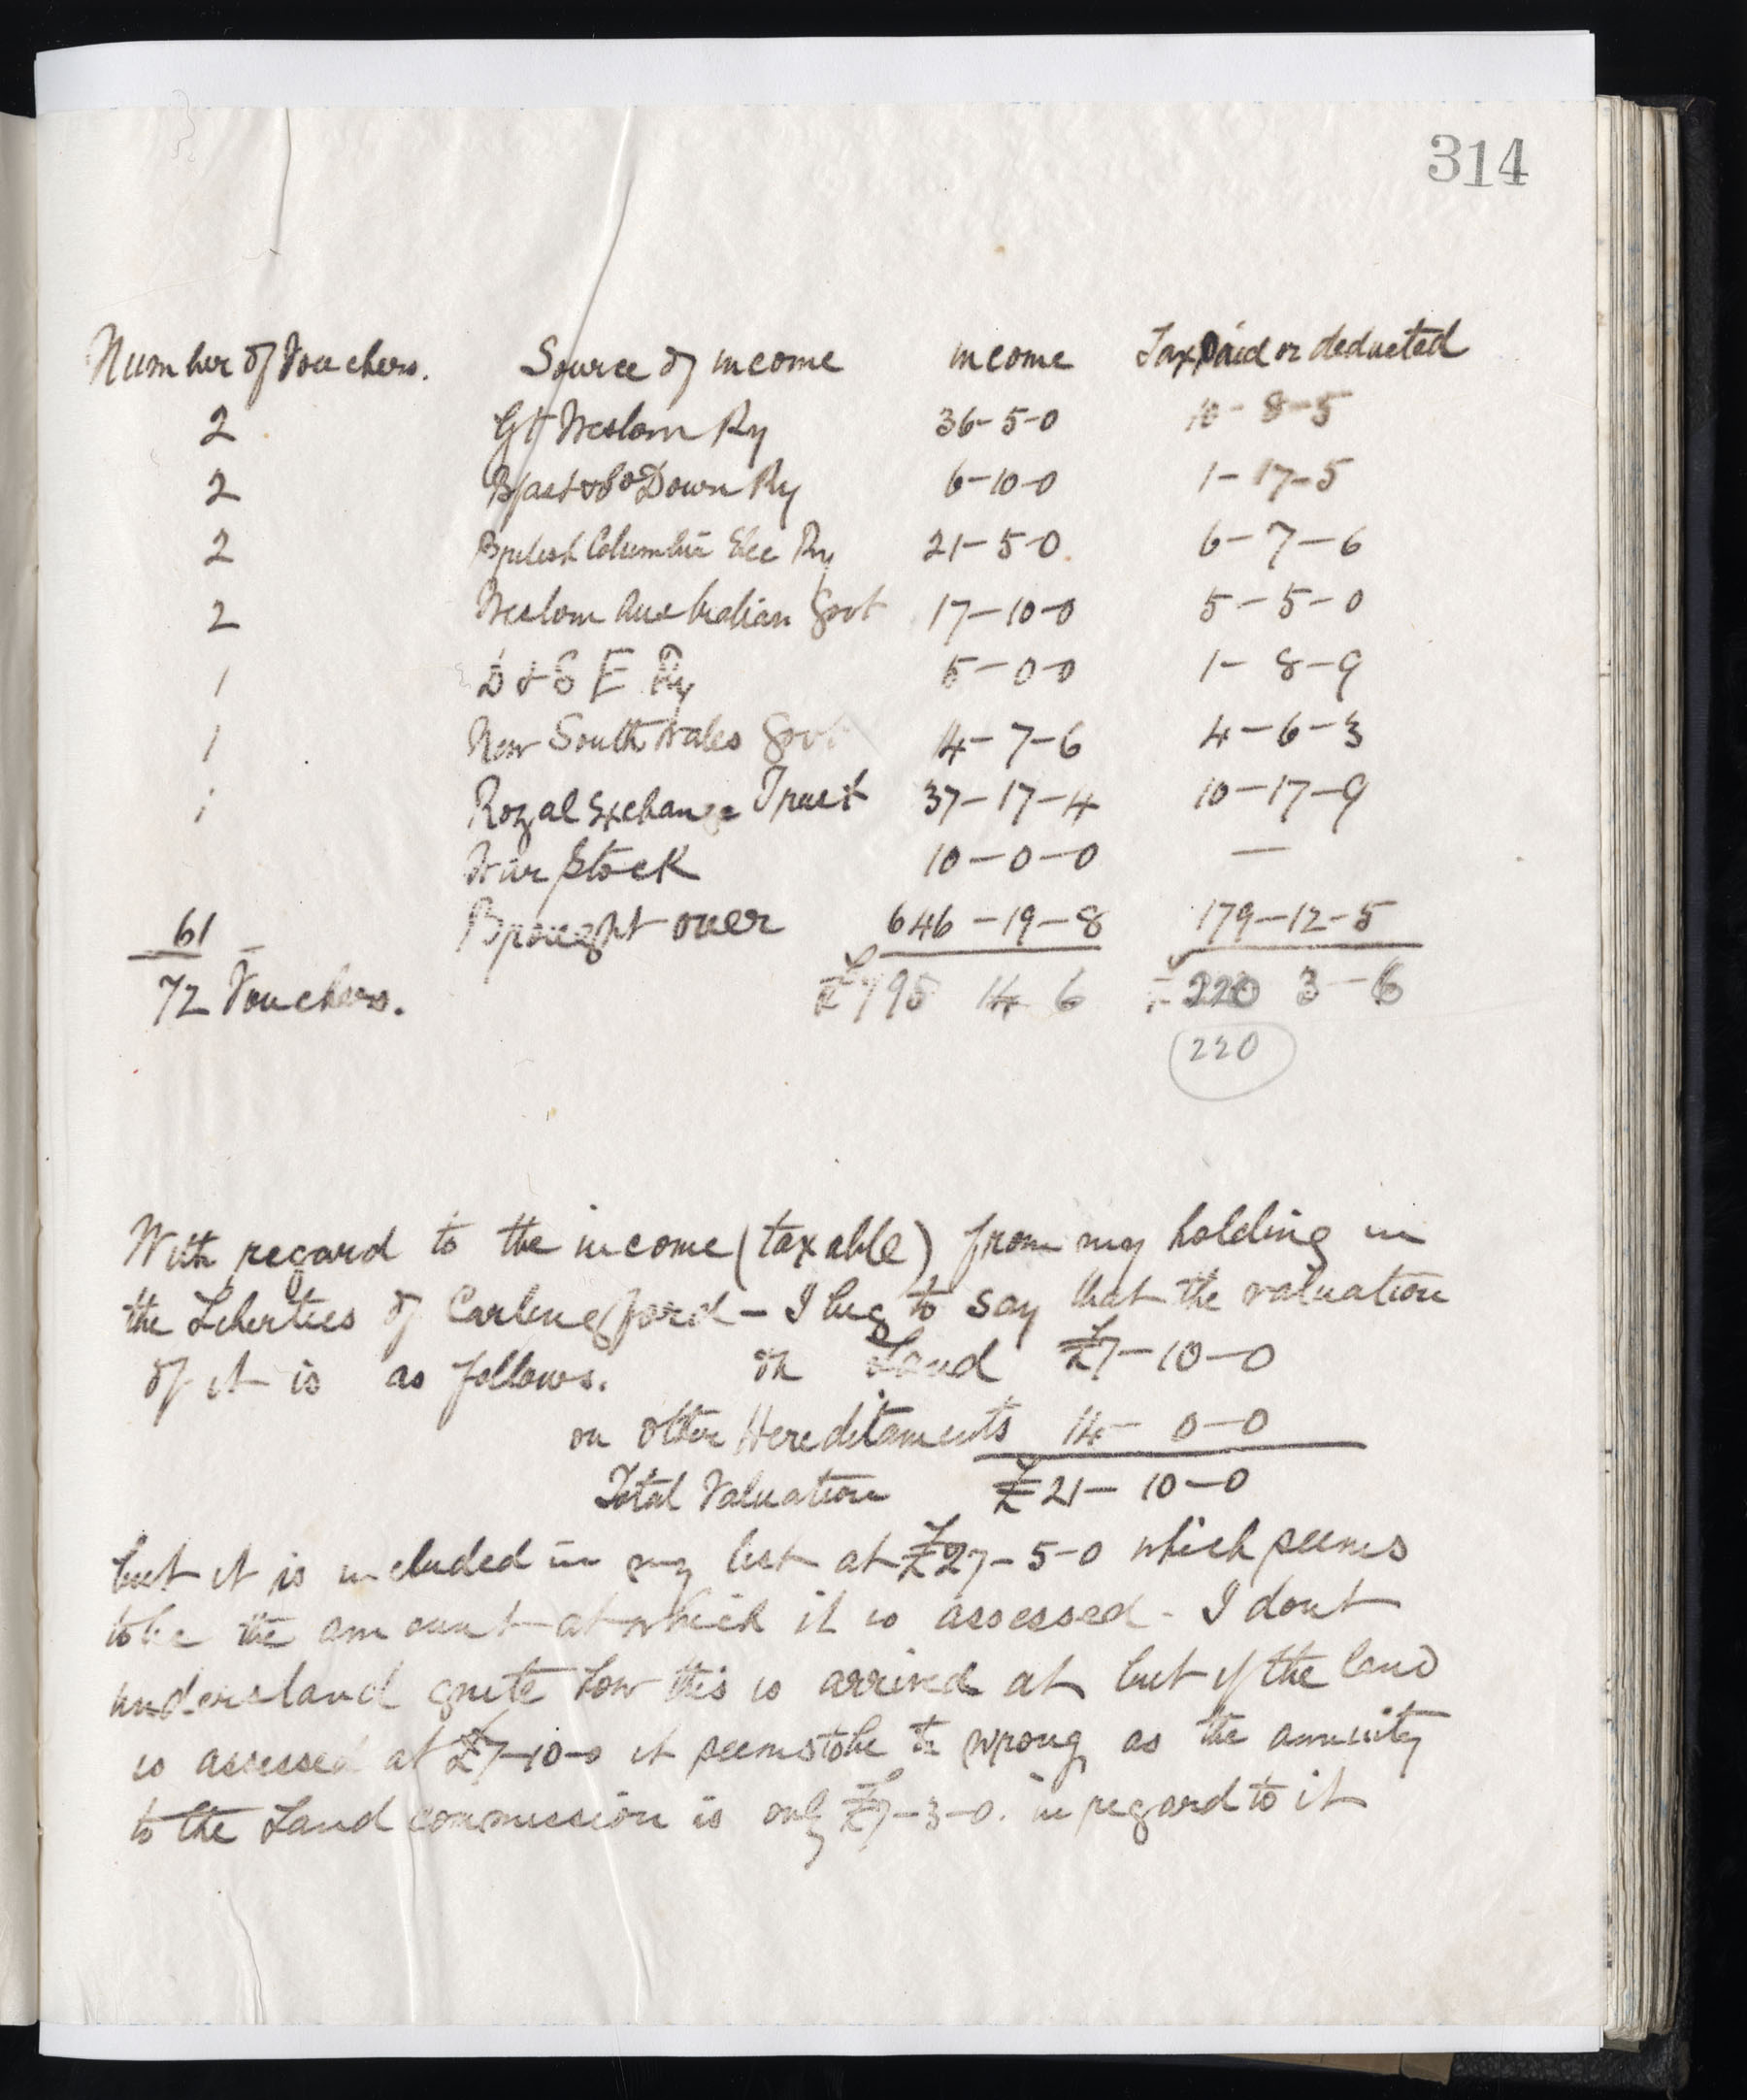 314
Number of Vouchers. Source of income income Tax Paid or deducted
2 Gt Western Ry 36-5-0 10-8-5
2 Bfast & Co Down Ry 6-10-0 1-17-5
2 British Columbia Elec Ry 21-5-0 6-7-6
2 Western Australian Govt 17-10-0 5-5-0
1 D & S E Ry 5-0-0 1-8-9
1 New South Wales Govt 4-7-6 4-6-3
1 Royal Exchange Trust 37-17-4 10-17-9
War Stock 10-0-0 —
61 Brought over 646-19-8 179-12-5
72 Vouchers. £795 14 6 £220 3-6
220
With regard to the income (taxable) from my holding in
the Liberties of Carlingford - I beg to say that the valuation
of it is as follows. on Land £7-10-0
on other Hereditaments 14-0-0
Total Valuation £21-10-0
but it is included in my list at £27-5-0 which seems
to be the amount at which it is assessed - I dont
understand quite how this is arrived at but if the land
is assessed at £7-10-0 it seems to be wrong as the annuity
to the Land commission is only £7-3-0. in regard to it